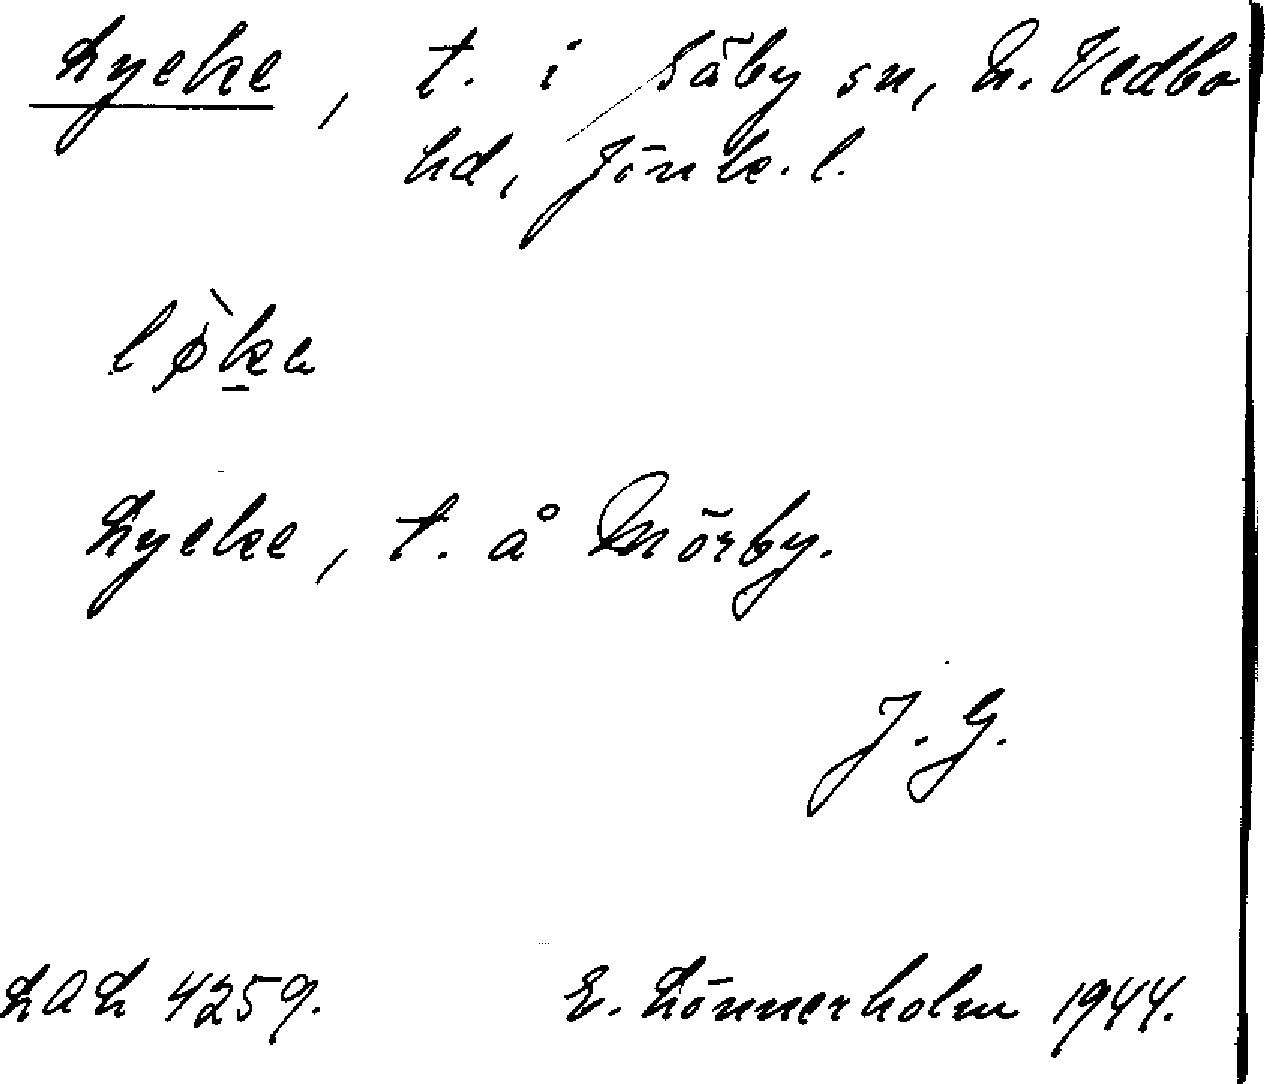 Lycke, t. i Säby sn, N. Vedbo
hd, Jönk. l.
lø̀ka
Lycke, t. å Mörby.
J. G.
LAL 4259. E. Lönnerholm 1944.